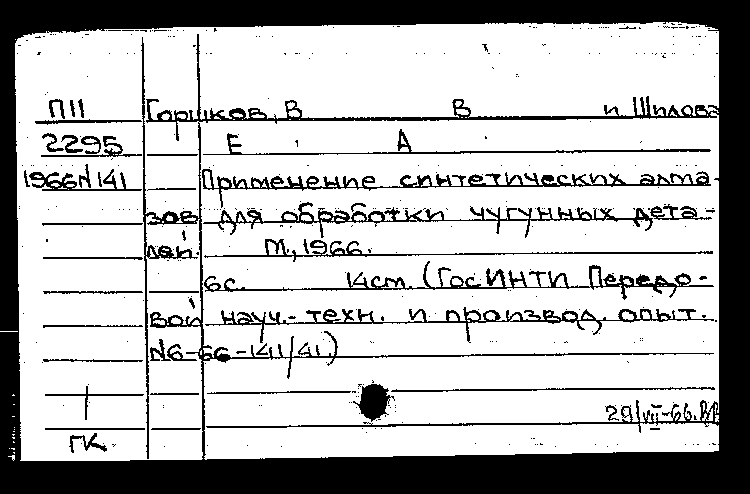 П11 Горшков, В В и Шилова
2295 Е А
1966 N 141 Применение синтетических алма-
зов для обработки чугунных дета-
лей. М., 1966.
6с. 14см. (ГосИНТИ Передо-
вой науч.-техн. и производ. опыт.
N6-66-141/41.)
29/VII-66.
ГК